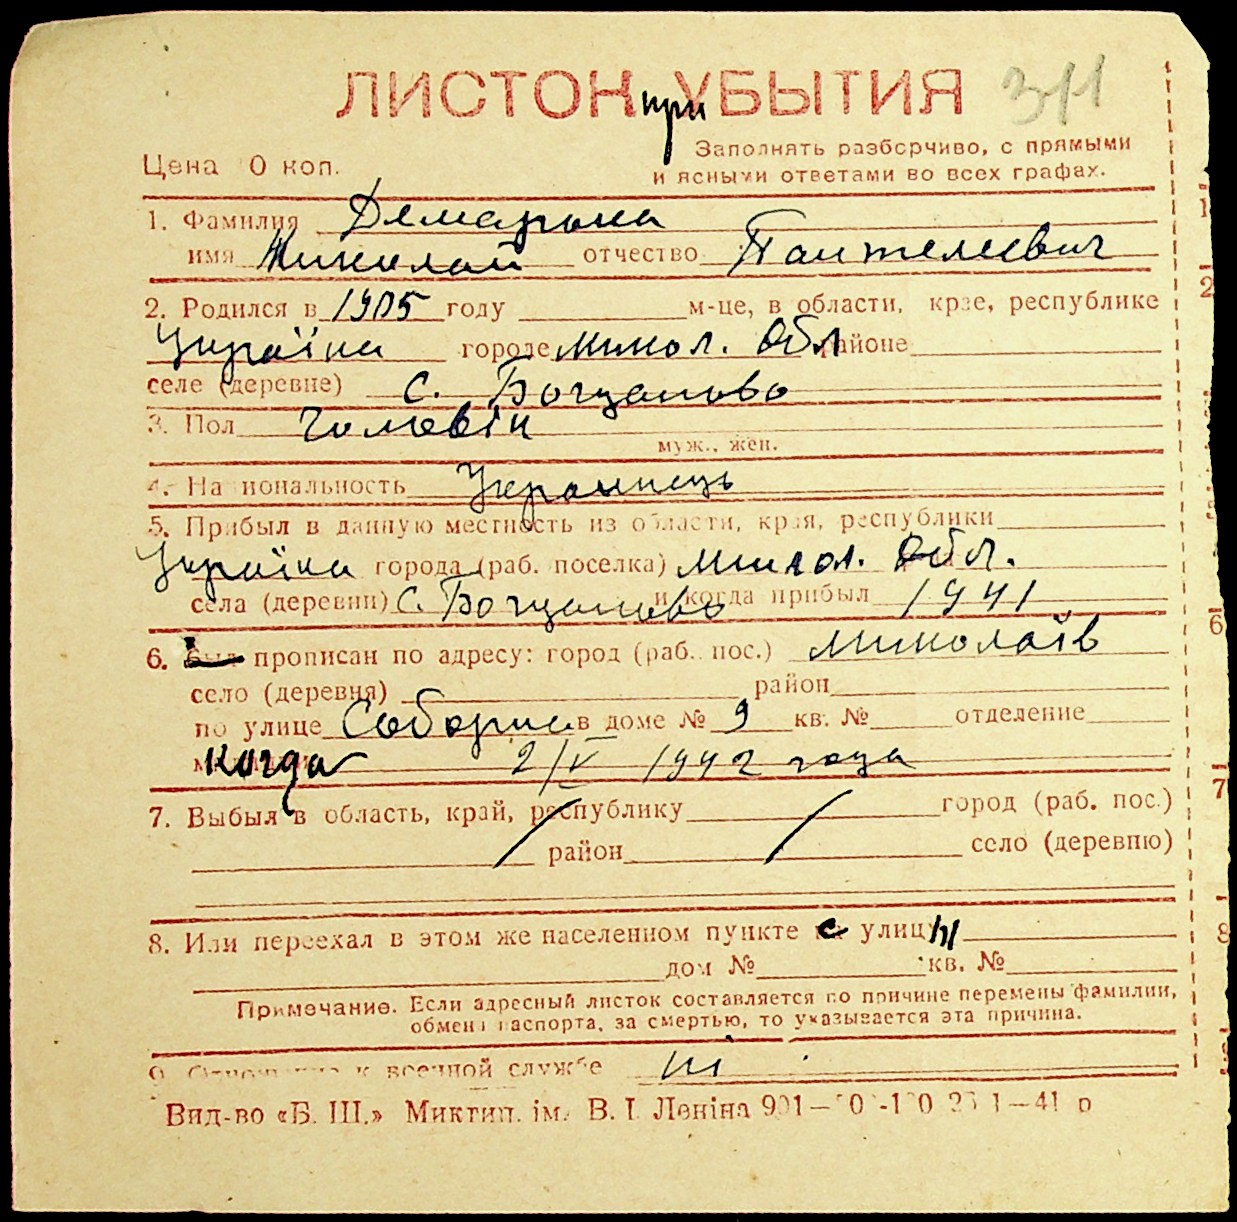 ЛИСТОК при УБЫТИЯ 311
Цена 0 коп.
Заполнять разборчиво, с прямыми
и ясными ответами во всех графах.
1. Фамилия
имя Николай отчество Пантелеевич
2. Родился в 1905 году м-це, в области, крае, республике
Україна городе Микол. Обл районе
селе (деревне) с. Богданово
3. Пол Чоловік
муж., жен.
4. Национальность Українець
5. Прибыл в данную местность из области, края, республики
Україна города (раб. поселка) Микол. Обл.
села (деревни) с. Богданово и когда прибыл 1941
6. был прописан по адресу: город (раб. пос.) Миколаїв
село (деревня) район
по улице Соборна в доме № 9 кв. № отделение
когда 2/V 1942 года
7. Выбыл в область, край, республику город (раб. пос.)
район село (деревню)
8. Или переехал в этом же населенном пункте с улицы
дом № кв. №
Примечание. Если адресный листок составляется по причине перемены фамилии,
обмена паспорта, за смертью, то указывается эта причина.
9. Отношение к военной службе ні
Вид-во «Б. Ш.» Миктип. ім. В. І. Леніна